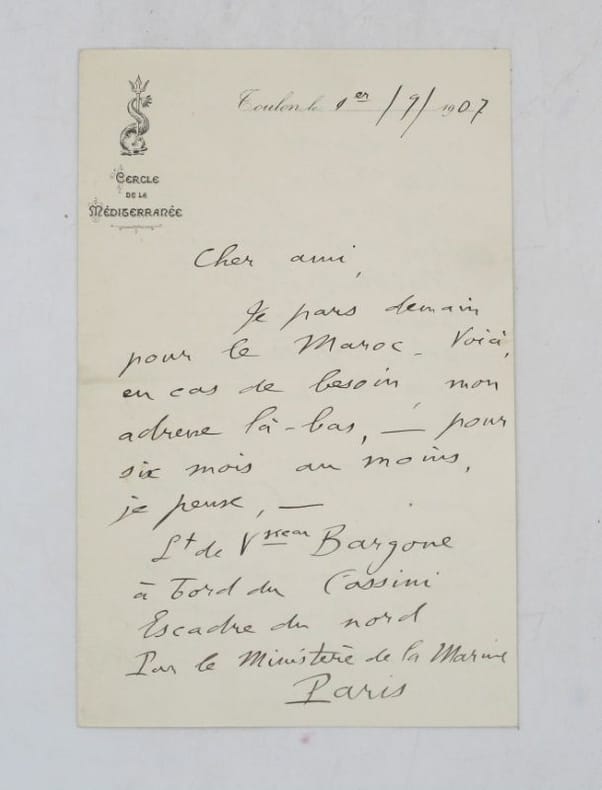 Toulon le 1er/9/1907
CERCLE
DE LA
MÉDITERRANÉE
Cher ami,
Je pars demain
pour le Maroc. Voici,
en cas de besoin, mon
adresse là-bas, — pour
six mois au moins,
je pense, —
Lt de Vsseau Bargone
à bord du Cassini
Escadre du nord
Par le Ministère de la Marine
Paris